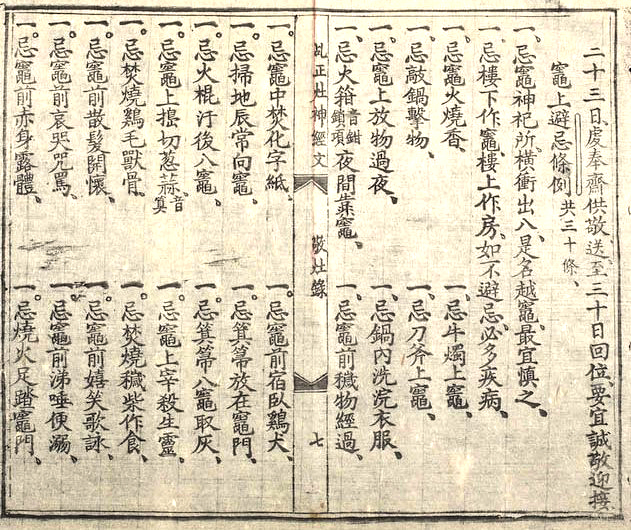 二十三日、虔奉齋供敬送至三十日回位、要宜誠敬迎接、
竈上避忌條例 共三十條、
一、忌竈神祀所、橫衝出入、是名越竈、最宜慎之、
一、忌樓下作竈、樓上作房、如不避忌、必多疾病、
一、忌竈火燒香、 一、忌牛燭上竈、
一、忌敲鍋擊物、 一、忌刀斧上竈、
一、忌竈上放物過夜、 一、忌鍋內洗浣衣服、
一、忌火箝音鉗鎖項夜間竈、 一、忌竈前穢物經過、
乩正灶神經文 敬灶錄 七
一。忌竈中焚化字紙、 一。忌竈前宿臥鷄犬、
一。忌掃地辰常向竈、 一。忌箕箒放在竈門、
一。忌火棍汙後入竈、 一。忌箕箒入竈取灰、
一。忌竈上擣切葱蒜、音筭 一。忌竈上宰殺生靈、
一。忌焚燒鷄毛獸骨、 一。忌焚燒穢柴作食、
一。忌竈前散髮開懷、 一。忌竈前嬉笑歌詠、
一。忌竈前哀哭咒罵、 一。忌竈前涕唾便溺、
一。忌竈前赤身露體、 一。忌燒火足踏竈門、